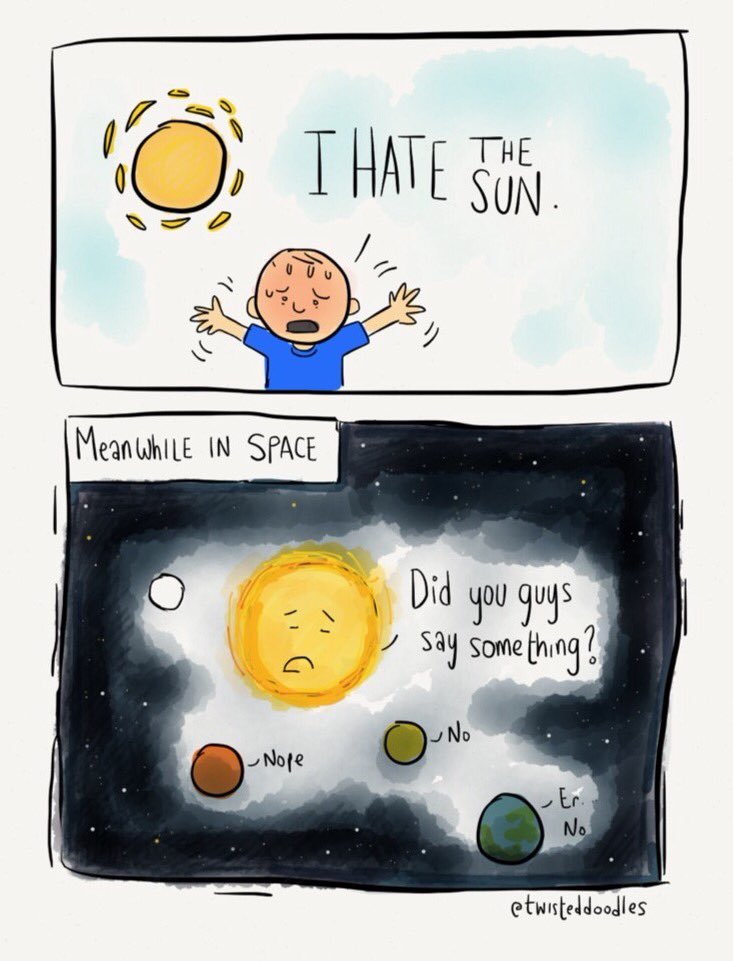 I HATE THE
SUN.
MeanWHILE IN SPACE
Did you guys
say something?
No
Nope
Er..
No
@twisteddoodles